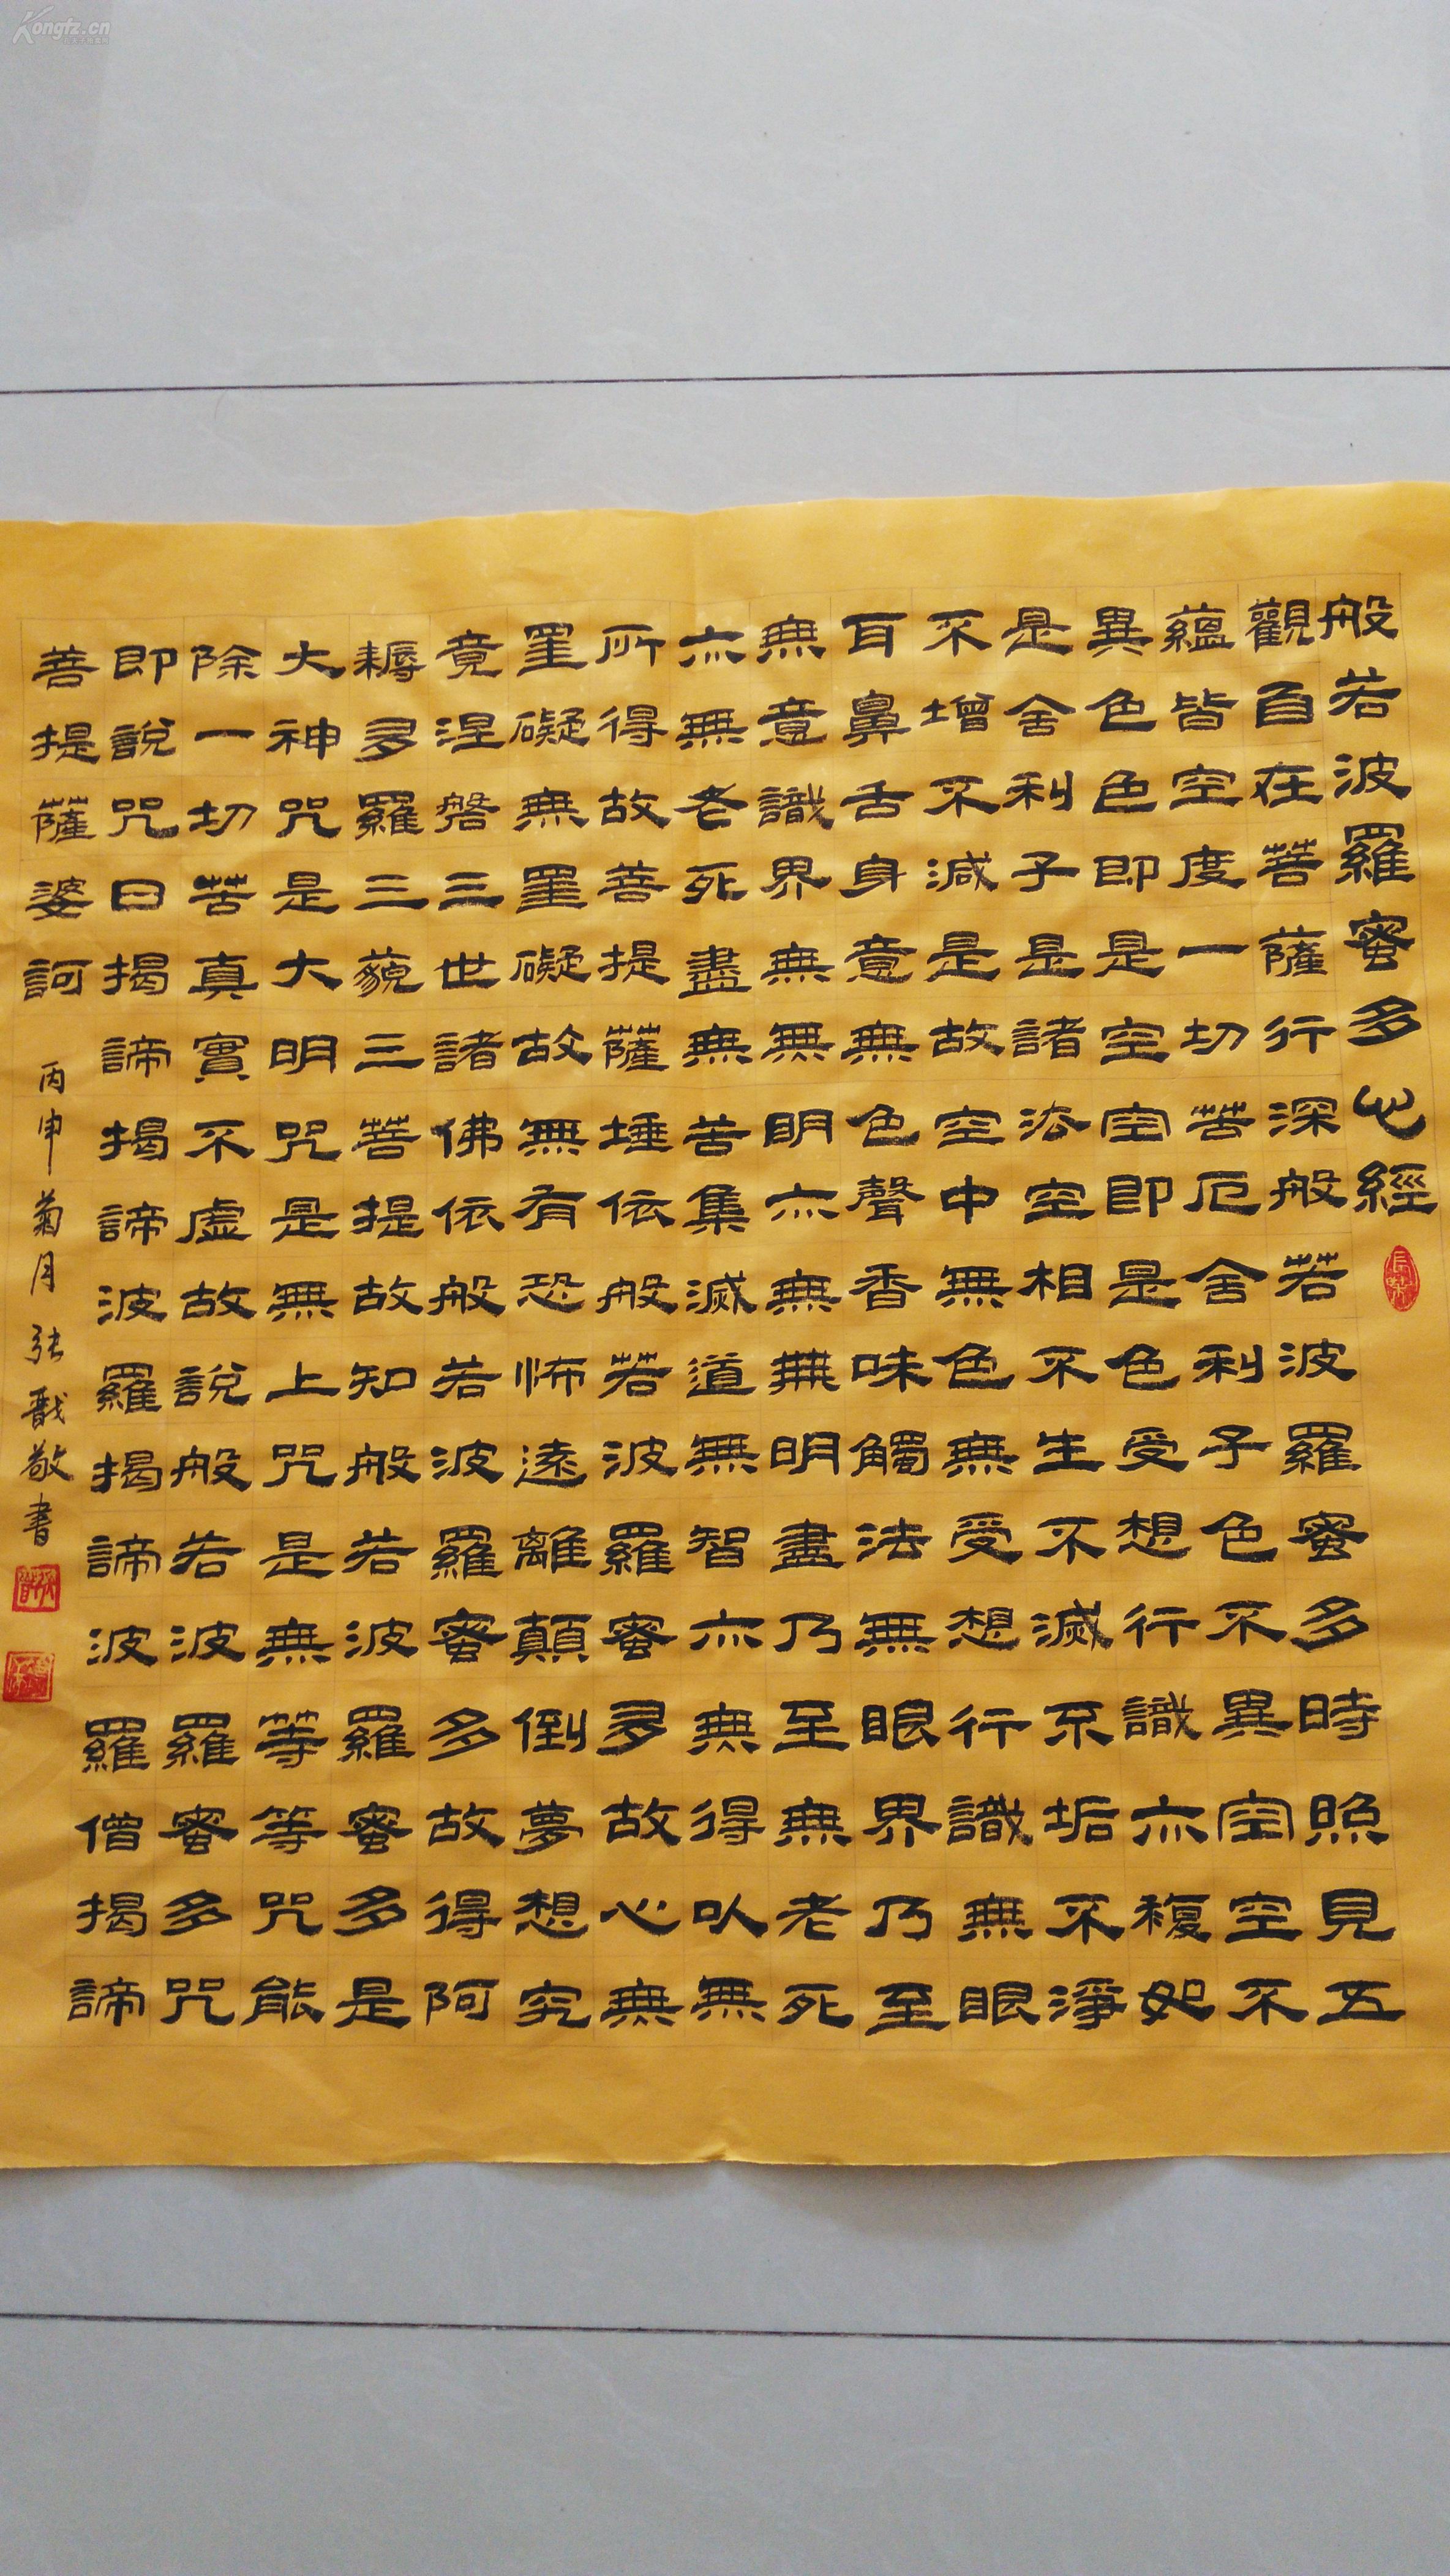 Kongfz.cn
般若波羅蜜多心經
觀自在菩薩行深般若波羅蜜多時照見五
蘊皆空度一切苦厄舍利子色不異空空不
異色色即是空空即是色受想行識亦複如
是舍利子是諸法空相不生不滅不垢不淨
不增不減是故空中無色無受想行識無眼
耳鼻舌身意無色聲香味觸法無眼界乃至
無意識界無無明亦無無明盡乃至無老死
亦無老死盡無苦集滅道無智亦無得以無
所得故菩提薩埵依般若波羅蜜多故心無
罣礙無罣礙故無有恐怖遠離顛倒夢想究
竟涅槃三世諸佛依般若波羅蜜多故得阿
耨多羅三藐三菩提故知般若波羅蜜多是
大神咒是大明咒是無上咒是無等等咒能
除一切苦真實不虛故說般若波羅蜜多咒
即說咒曰揭諦揭諦波羅揭諦波羅僧揭諦
菩提薩婆訶
丙申菊月張敬書